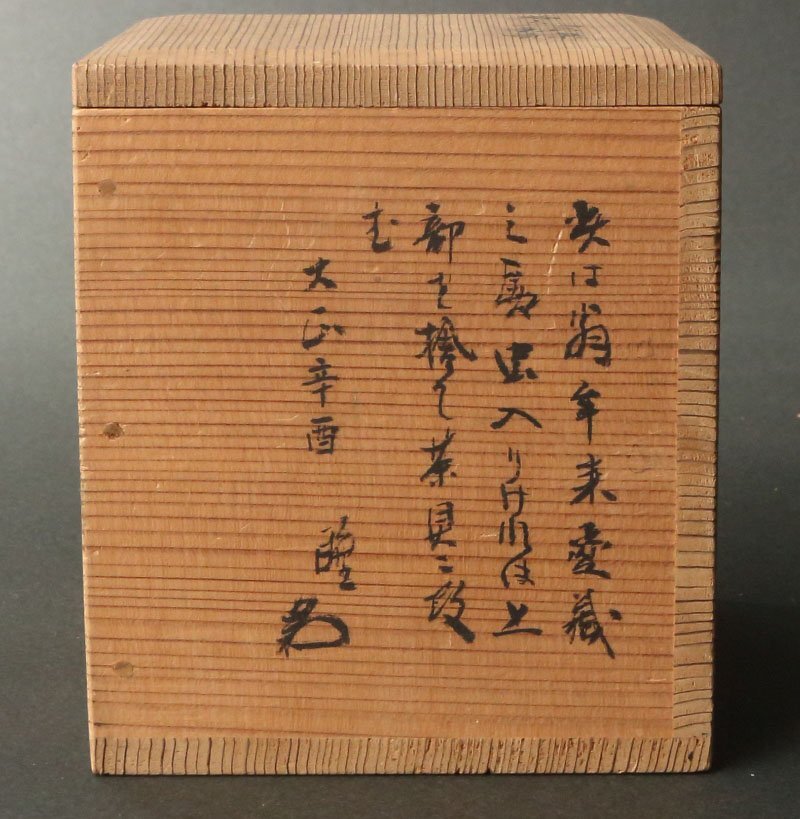 此は翁年来愛蔵
之 虫入りけれは上
部を捨て茶具ニ改
む
大正辛酉